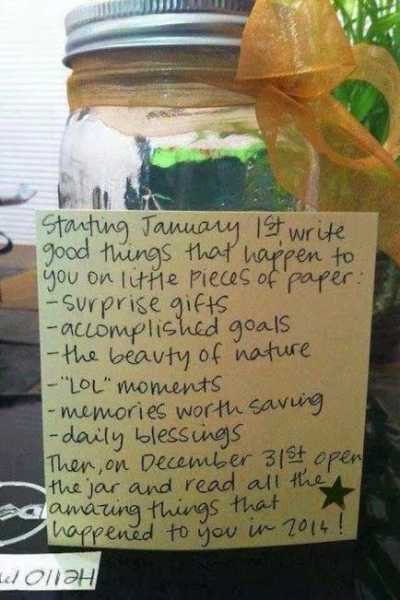 Starting January 1st, write
good things that happen to
you on little pieces of paper:
-surprise gifts
-accomplished goals
-the beauty of nature
-"LOL" moments
-memories worth saving
-daily blessings
Then, on December 31st open
the jar and read all the
amazing things that
happened to you in 2014!
Hello